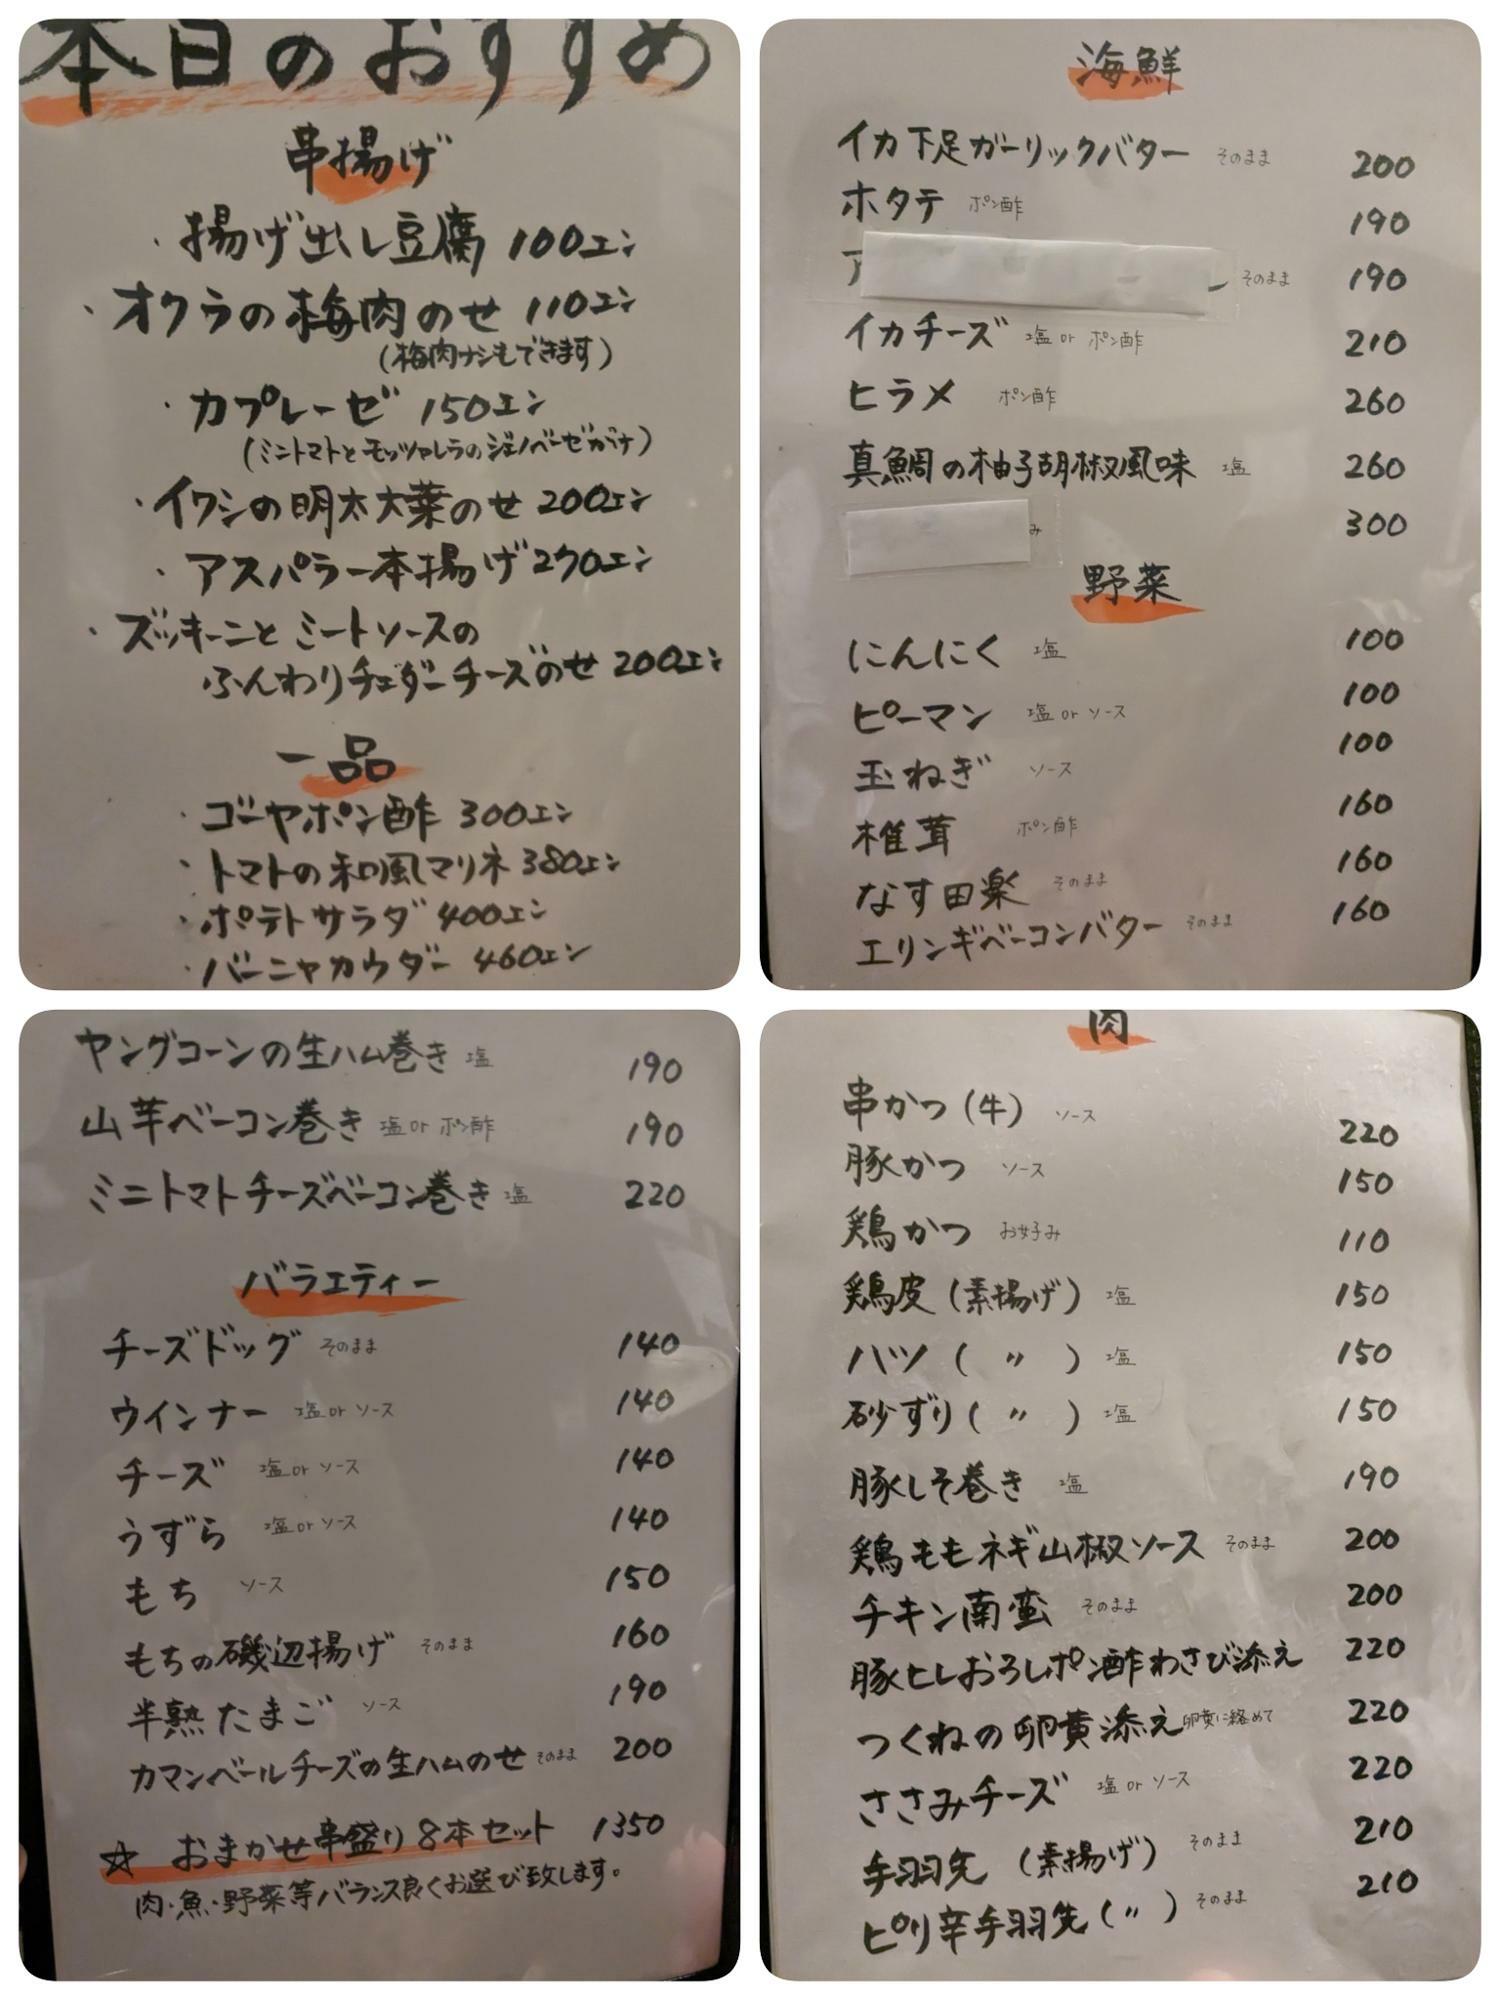 本日のおすすめ
串揚げ
・揚げ出し豆腐 100エン
・オクラの梅肉のせ 110エン
(梅肉ナシもできます)
・カプレーゼ 150エン
(ミニトマトとモッツァレラのジェノベーゼがけ)
・イワシの明太大葉のせ 200エン
・アスパラ一本揚げ 270エン
・ズッキーニとミートソースの
ふんわりチェダーチーズのせ 200エン
一品
・ゴーヤポン酢 300エン
・トマトの和風マリネ 380エン
・ポテトサラダ 400エン
・バーニャカウダー 460エン
海鮮
イカ下足ガーリックバター そのまま 200
ホタテ ポン酢 190
ア そのまま 190
イカチーズ 塩 or ポン酢 210
ヒラメ ポン酢 260
真鯛の柚子胡椒風味 塩 260
み 300
野菜
にんにく 塩 100
ピーマン 塩 or ソース 100
玉ねぎ ソース 100
椎茸 ポン酢 160
なす田楽 そのまま 160
エリンギベーコンバター そのまま 160
ヤングコーンの生ハム巻き 塩 190
山芋ベーコン巻き 塩 or ポン酢 190
ミニトマトチーズベーコン巻き 塩 220
バラエティー
チーズドッグ そのまま 140
ウインナー 塩 or ソース 140
チーズ 塩 or ソース 140
うずら 塩 or ソース 140
もち ソース 150
もちの磯辺揚げ そのまま 160
半熟たまご ソース 190
カマンベールチーズの生ハムのせ そのまま 200
☆ おまかせ串盛り 8本セット 1350
肉・魚・野菜等バランス良くお選び致します。
肉
串かつ (牛) ソース 220
豚かつ ソース 150
鶏かつ お好み 110
鶏皮 (素揚げ) 塩 150
ハツ ( 〃 ) 塩 150
砂ずり ( 〃 ) 塩 150
豚しそ巻き 塩 190
鶏ももネギ山椒ソース そのまま 200
チキン南蛮 そのまま 200
豚ヒレおろしポン酢わさび添え 220
つくねの卵黄添え 卵黄に絡めて 220
ささみチーズ 塩 or ソース 220
手羽先 (素揚げ) そのまま 210
ピリ辛手羽先 ( 〃 ) そのまま 210